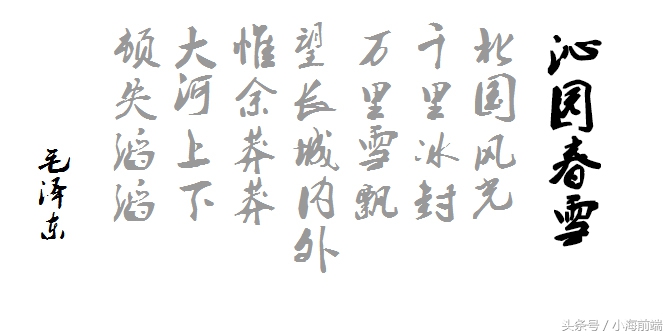 沁园春雪
北国风光
千里冰封
万里雪飘
望长城内外
惟余莽莽
大河上下
顿失滔滔
毛泽东
头条号 / 小海前端